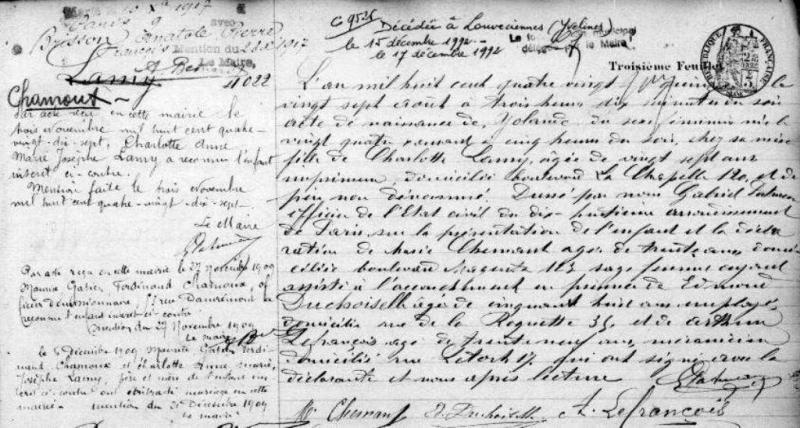 1917
Paris 9
Brisson Anatole Pierre
François
avec
Mention du 22 X 1917
Le Maire,
Lamy
11022
Chamoux
Par acte reçu en cette mairie le
trois novembre mil huit cent quatre-
vingt-dix-sept, Charlotte Anne
Marie Josèphe Lamy a reconnu l'enfant
inscrit ci-contre.
Mention faite le trois novembre
mil huit cent quatre-vingt-dix-sept
Le Maire
Par acte reçu en cette mairie le 27 novembre 1909
Maurice Gatien Ferdinand Chamoux, of
ficier démissionnaire, rue Damrémont
reconnu l'enfant inscrit ci-contre
Mention du 27 Novembre 1909
Le maire
Le 9 décembre 1909 Maurice Gatien Ferdi
nand Chamoux et Charlotte Anne Marie
Josèphe Lamy, père et mère de l'enfant ins
crit ci-contre ont contracté mariage en cette
mairie. mention du Décembre 1909
Le maire
Décédée à Louveciennes (Yvelines)
le 15 décembre 1992
le 17 décembre 1992
le Maire
Troisième Feuillet
RÉPUBLIQUE FRANÇAISE
L'an mil huit cent quatre vingt quinze, le
vingt sept août à trois heures dix minutes du soir
acte de naissance de Yolande du sexe féminin née le
vingt quatre courant à cinq heures du soir, chez sa mère
fille de Charlotte Lamy, âgée de vingt sept ans
domiciliée boulevard La Chapelle 120, et de
père non dénommé. Dressé par nous Gabriel
officier de l'Etat civil du dix-huitième arrondissement
de Paris, sur la présentation de l'enfant et la décla
ration de Marie Chemant âgée de trente ans, domi
ciliée boulevard Magenta 113 sage femme ayant
assisté à l'accouchement en présence de Edmond
Duchoiselle âgé de cinquante huit ans employé
domicilié rue de la Roquette 35, et de Arthur
Lefrançois âgé de trente neuf ans, mécanicien
domicilié rue Letort 17, qui ont signé avec la
déclarante et nous après lecture
M. Chemant Duchoiselle A. Lefrançois